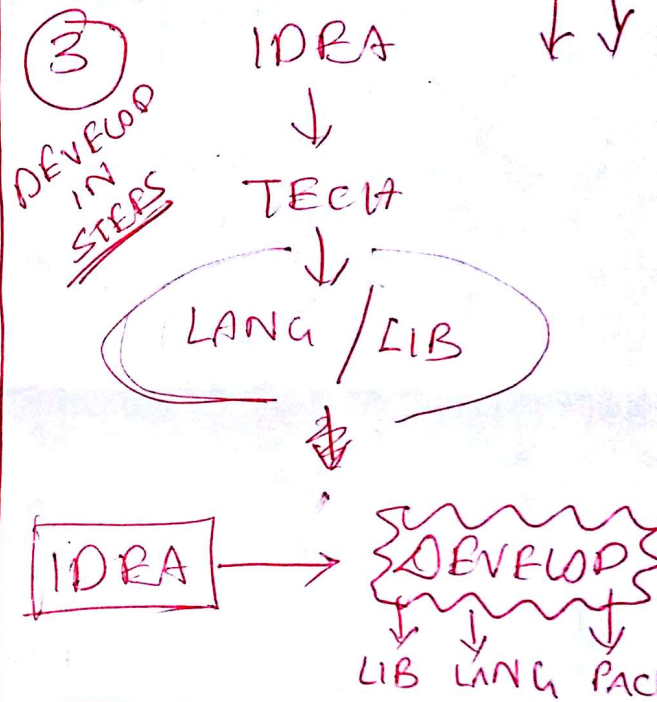 3
IDEA
DEVELOP
IN
STEPS
TECH
LANG / LIB
IDEA
DEVELOP
LIB LANG PAC